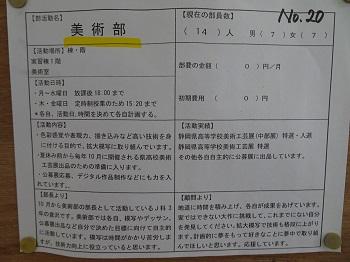 【部活動名】
美術部
【現在の部員数】
No.20
(14)人 男(7)女(7)
【活動場所】棟・階
実習棟1階
美術室
部費の金額 ( 0 )円/月
【活動日時】
・月~水曜日 放課後 18:00まで
・木曜日 定時制授業のため 15:20まで
*各自、活動日、時間を決めて各自計画する。
初期費用 ( 0 )円
【活動内容】
・色彩感覚や表現力、描き込みなど高い技術を身
に付ける目的で、拡大模写に取り組んでいます。
・夏休み前から毎年10月に開催される県高校美術
工芸展出品のための準備に入ります。
・公募展応募、デジタル作品制作などにも力を入れ
ています。
【活動実績】
静岡県高等学校美術工芸展(中部展) 特選・入選
静岡県高等学校美術工芸展 特選
その他各自自主的に公募展に出品しています。
【部長より】
10月から美術部の部長として活動しているJ科3
年の意沢です。美術部では各自、模写やデッサン、
公募展出品など自分で決めた目標に向けて自主的
に活動しています。模写は時間がかかり苦労しま
すが、技術力向上に役立っていると思います。
【顧問より】
地道に時間を積み上げ、各自が成果をあげています。授
業ではできない大作に挑戦して、これまでにない自分
を発見してください。拡大模写で技術も格段に上がり
ます。計画的に夢をもって好きなことに夢中で取り組
んでほしいと思います。応援しています。